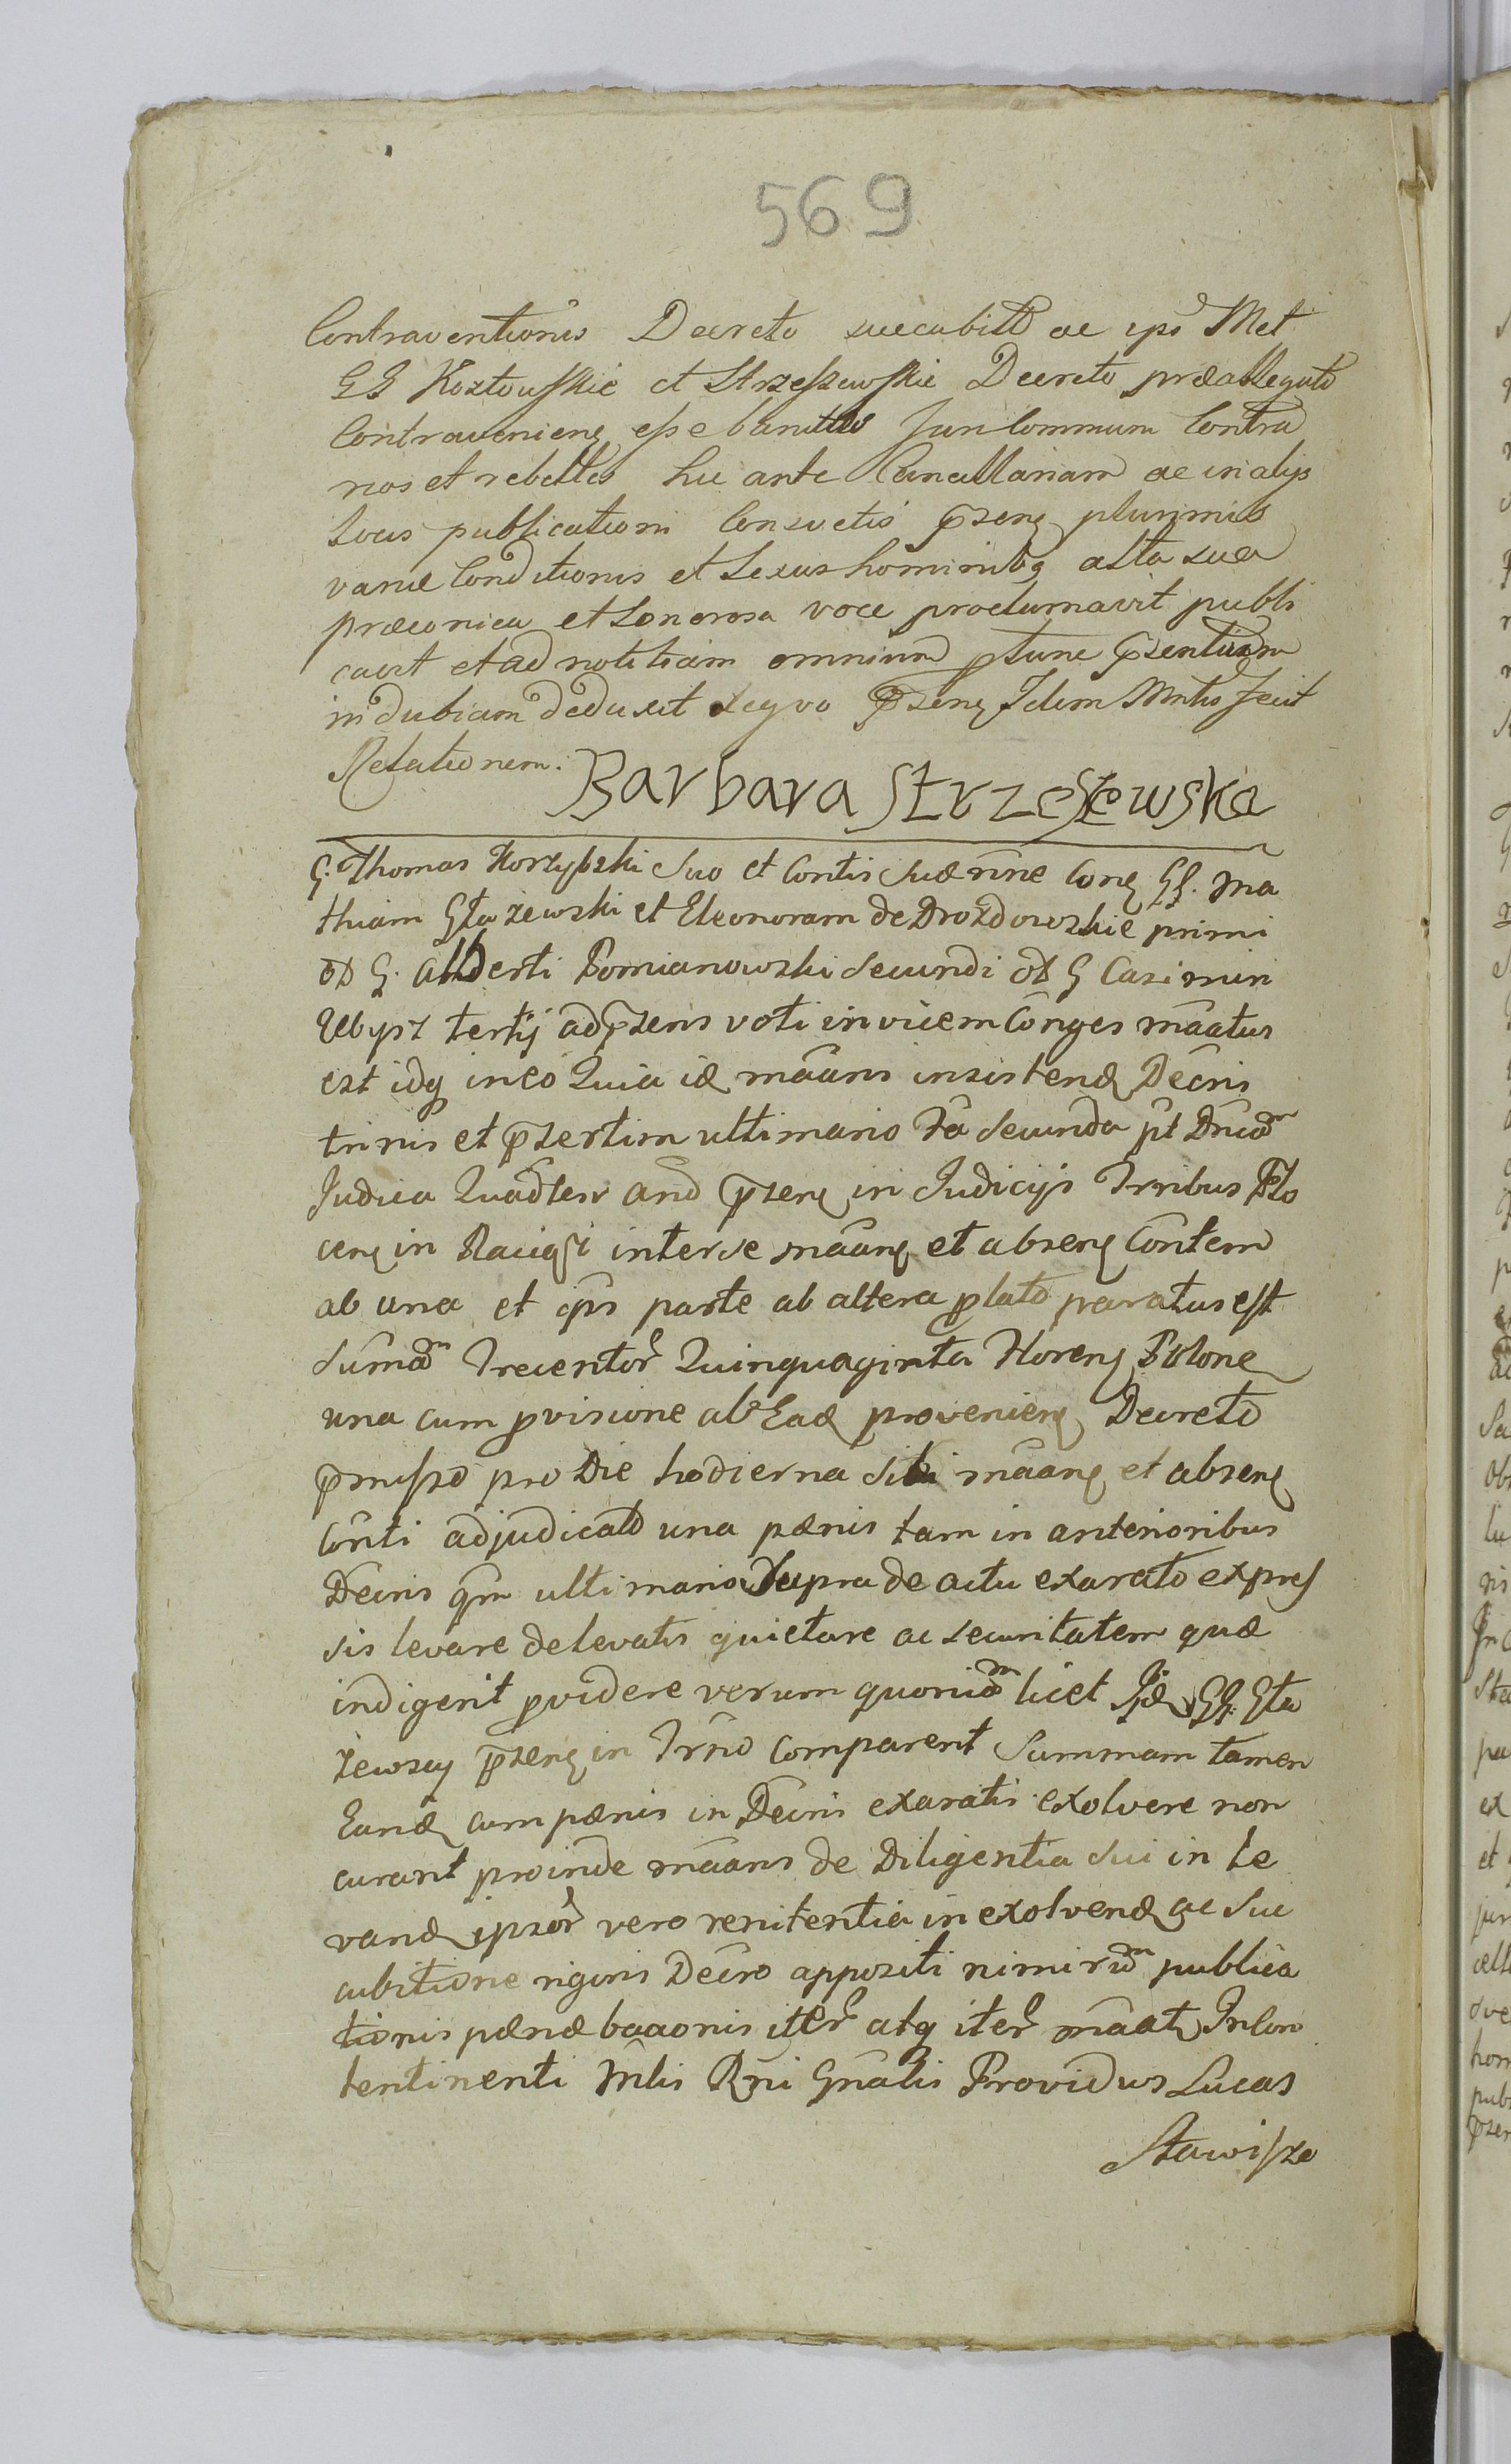 569
Contraventionis Decreto succubitt ac ips Met
GG Kozłowskie et Strzeszewskie Decreto præallegato
Contravenieng esse banittos Juri Commum Contra
rios et rebelles hic ante Cancellariam ac in alijs
Locis publicationi Consvetis p̄zeng plurimis
variæ Conditionis et Sexus hominibq alta sua
præconica et Sonorosa voce proclamavit publi
cavit et ad notitiam omnium p̄tunc p̄zentium
indubiam deduxit deqvo p̄zeng Idem Mntis fecit
Relationem.
Barbara Strzeszewska
G. Thomas Korzybski Suo et Contis Suæ nne Cong GG. Ma
thiam Głażewski et Eleonoram de Drozdowskie primi
ot G. Alberti Pomianowski Secundi ot G Casimiri
Ubysz tertij ad p̄zens voti invicem Conges māatus
est idq in eo Quia id māans insistend Decris
trinis et p̄zertim ultimario F̄a Secunda pt Dnicam
Judica Quadlesr And p̄zeng in Judicijs Trribus Plo
ceng in Raciąż inter se māang et abzeng Contem
ab una et ips parte ab altera p̄lato paratus est
Sumam Trecentor Quinquaginta Floreng Polone
una cum pvisione ab Ead provenieng Decreto
p̄misso pro Die hodierna Sibi māang et abzeng
Conti adjudicato una pænis tam in anterioribus
Decris qm ultimario Supra de actu exarato expres
sis levare de levatis quietare ac securitatem quæ
indigerit pvidere verum quoniam licet Iid GG. Gła
żewscy p̄zeng in Trno comparent Summam tamen
Eand cum pænis in Decris exaratis exolvere non
curant proinde māans de Diligentia sui in le
vand ipsor vero renitentia in exolvend ac Suc
cubitione rigoris Decro appositi nimirum publica
tionis pænæ baaonis iter atq iter māat InCon
tentinenti Mtis Rni Gnalis Providus Lucas
Stawisza